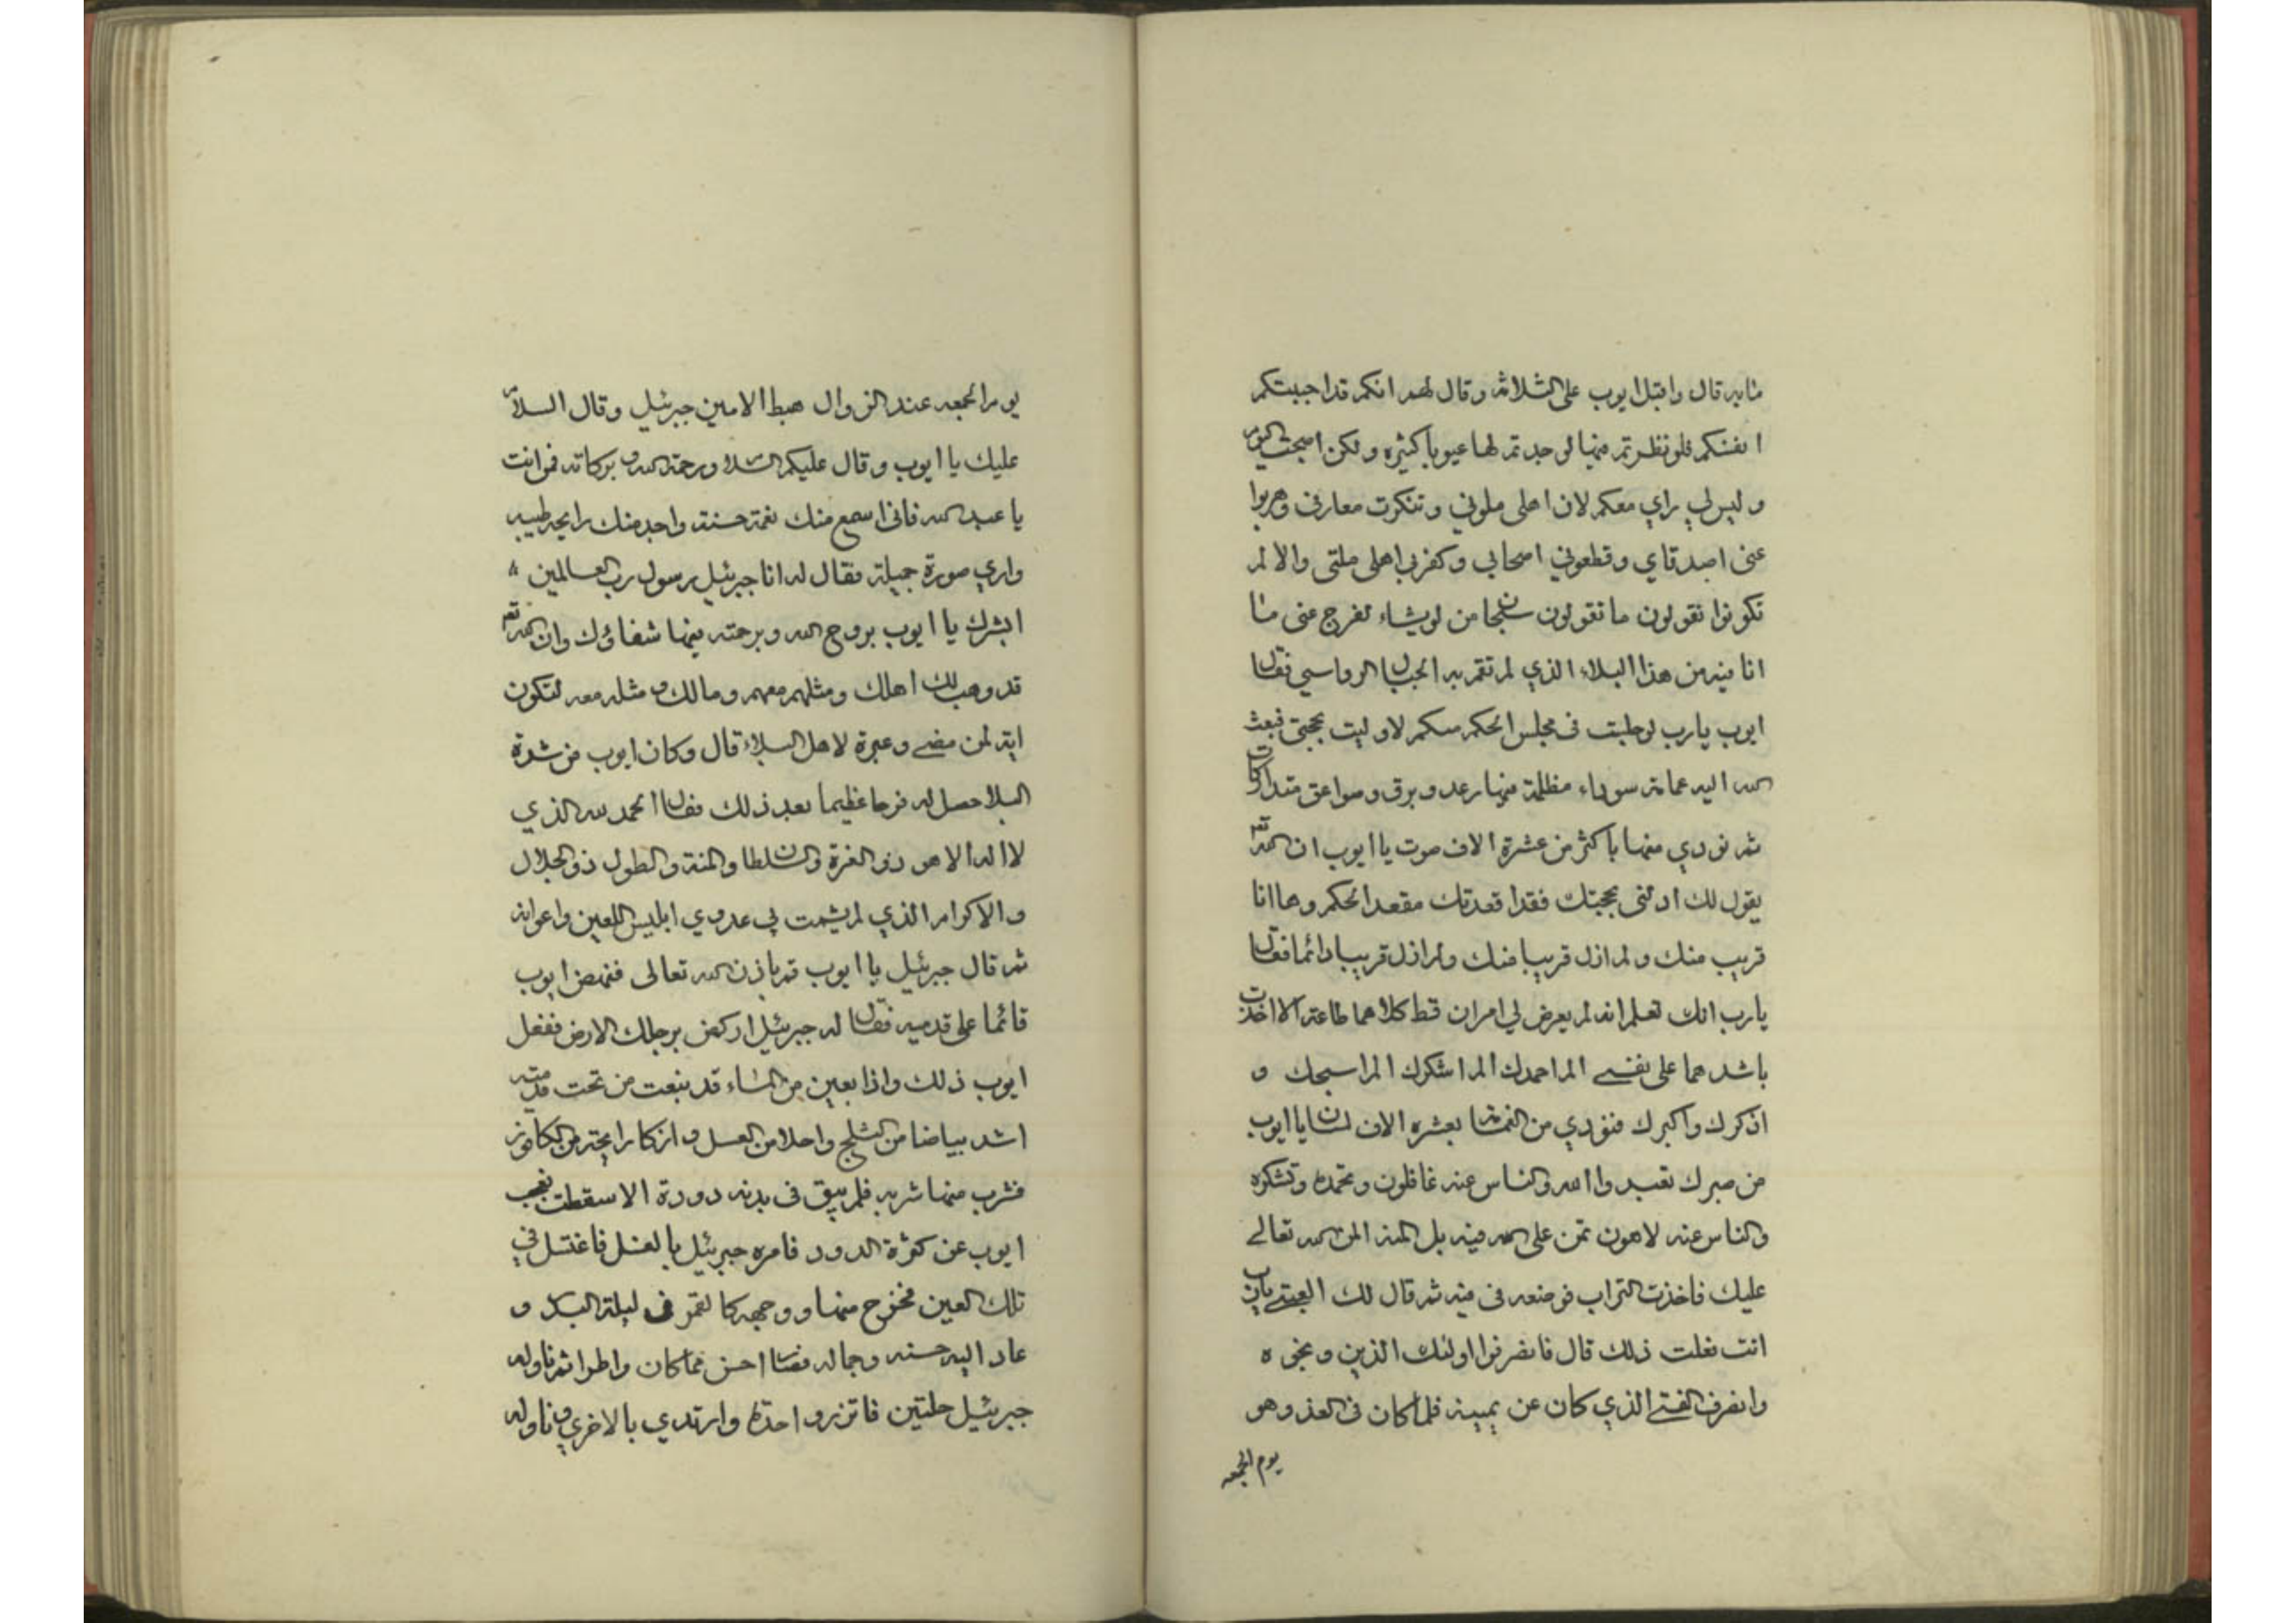 ما به قال واقبل ايوب على الثلاثه وقال لهم انكم قد اجبتكم
انفسكم فلو نظرتم فيها لوجدتم لها عيوبا كثيره ولكن اصبحت اليوم
وليس لي راي معكم لان اهلي ملوني وتنكرت معارفي وهربوا
عني اصدقاي وقطعوني اصحابي وكفر بي اهلي ملتي والا لم
تكونوا تقولون ما تقولون سبحان من لو يشاء لفرج عني ما
انا فيه من هذا البلاء الذي لم تقم به الجبال الرواسي فقال
ايوب يارب لو جلبت في مجلس الحكم منكم لاوليت بحجتي فبعث
الله اليه غمامة سوداء مظلمة فيها رعد وبرق وصواعق متداركات
ثم نودي منها باكثر من عشرة الاف صوت يا ايوب ان الله تع
يقول لك ادلني بحجتك فقد اقعدتك مقعد الحكم وها انا
قريب منك ولم ازل قريبا منك ولم ازل قريبا دائما فقال
يارب انك تعلم انه لم يعرض لي امران قط كلاهما طاعة الا اخذت
باشدهما على نفسي الم احمدك الم اشكرك الم اسبحك و
اذكرك واكبرك فنودي من الغمامة بعشره الاف لسان يا ايوب
من صبرك تعبد والله والناس عنه غافلون وتحمده وتشكره
والناس عنه لاهون تمن على الله فيه بل المنه المن لله تعالى
عليك فاخذت التراب فوضعه في فيه ثم قال لك العتبى يا رب
انت فعلت ذلك قال فانصرفوا اولئك الذين ونحوه
وانصرف الفتى الذي كان عن يمينه فلما كان في الغد وهو
يوم الجمعه
يوم الجمعه عند الزوال هبط الامين جبرئيل وقال السلام
عليك يا ايوب وقال عليكم السلام ورحمة الله وبركاته فمن انت
يا عبد الله فاني اسمع منك نغمة حسنة واجد منك رايحه طيبه
واري صورة جميلة فقال له انا جبرئيل رسول رب العالمين
ابشرك يا ايوب بروح الله وبرحمته فيها شفاؤك وان الله تع
قد وهب لك اهلك ومثلهم معهم ومالك ومثله معه لتكون
اية لمن مضى وعبرة لاهل البلاء قال وكان ايوب من شدة
البلا حصل له فرحا عظيما بعد ذلك فقال الحمد لله الذي
لا اله الا هو ذي العزة والسلطان والمنة والطول ذو الجلال
والاكرام الذي لم يشمت بي عدوي ابليس اللعين واعوانه
ثم قال جبرئيل يا ايوب قم باذن الله تعالى فنهض ايوب
قائما على قدميه فقال له جبرئيل اركض برجلك الارض ففعل
ايوب ذلك واذا بعين من الماء قد نبعت من تحت قدميه
اشد بياضا من الثلج واحلا من العسل وازكا رايحته من الكافور
فشرب منها شربه فلم يبق في بدنه دودة الا سقطت فعجب
ايوب عن كثرة الدود فامره جبرئيل بالغسل فاغتسل في
تلك العين فخرج منها ووجهه كالقمر في ليلة البدر و
عاد اليه حسنه وجماله فصار احسن مما كان واطرا ثم ناوله
جبرئيل حلتين فاتزر واحدة وارتدي بالاخري وناوله